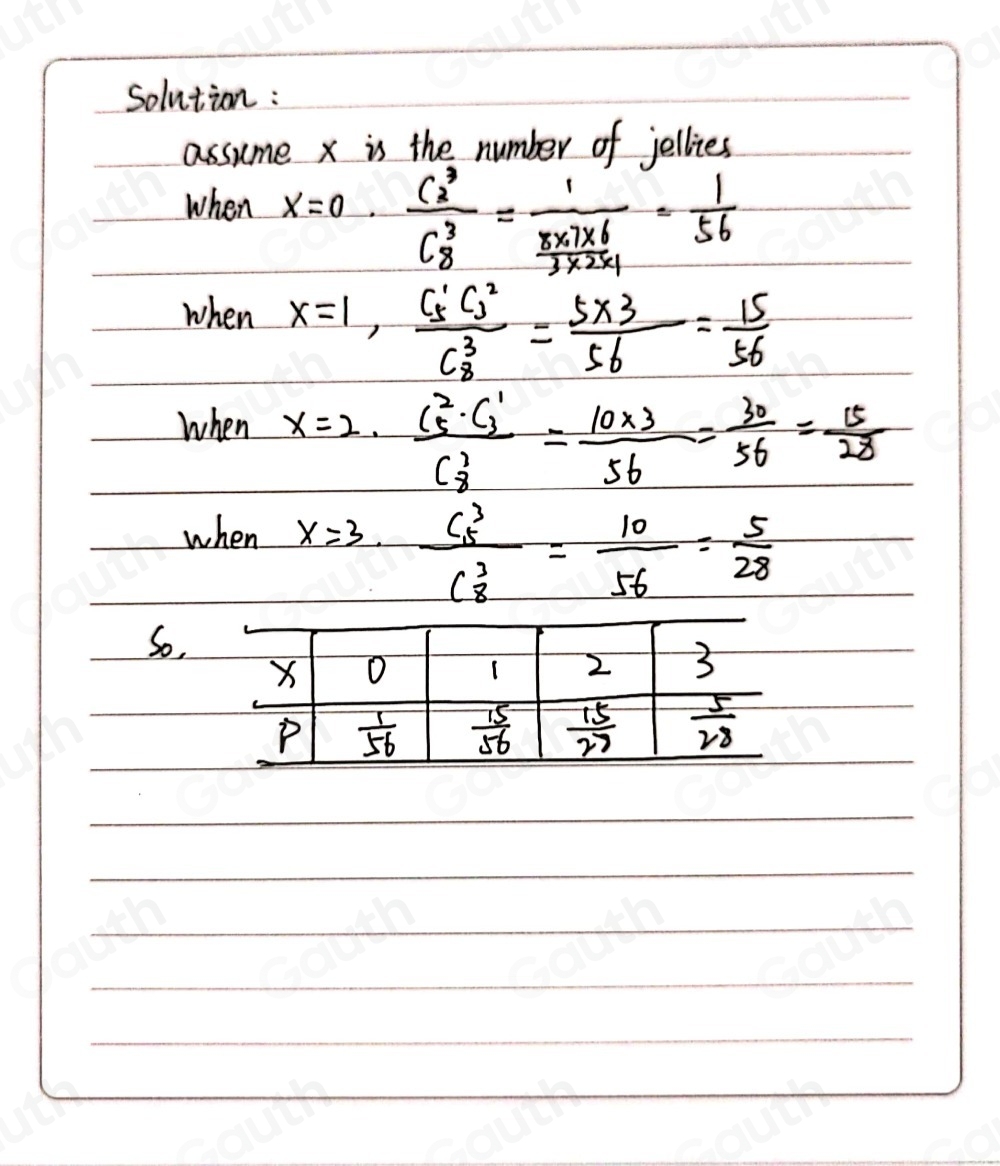 Solution :
assume x is the number of jellies
When x=0 . C₃³/C₈³ = 1/(8×7×6/3×2×1) = 1/56
When x=1 , C₅¹C₃²/C₈³ = 5×3/56 = 15/56
When x=2 . C₅²·C₃¹/C₈³ = 10×3/56 = 30/56 = 15/28
when x=3 . C₅³/C₈³ = 10/56 = 5/28
So,
X 0 1 2 3
P 1/56 15/56 15/28 5/28
Gauth